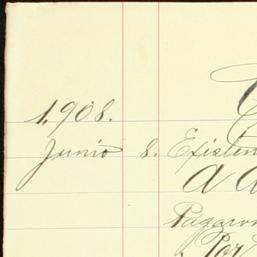 1,908.
Junio 8. Existen
a a
Pagaron
Por